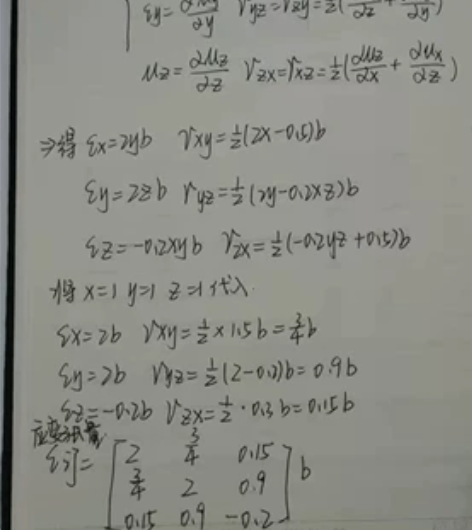 εy=∂uy/∂y γyz=γzy=½(∂/∂z+/∂y)
uz=∂uz/∂z γzx=γxz=½(∂uz/∂x+∂ux/∂z)
⇒得 εx=2yb γxy=½(2x-0.5)b
εy=2zb γyz=½(2y-0.2xz)b
εz=-0.2xyb γzx=½(-0.2yz+0.5)b
将x=1 y=1 z=1代入
εx=2b γxy=½×1.5b=¾b
εy=2b γyz=½(2-0.2)b=0.9b
εz=-0.2b γzx=½·0.3b=0.15b
应变张量
εij=[2 ¾ 0.15
¾ 2 0.9
0.15 0.9 -0.2]b